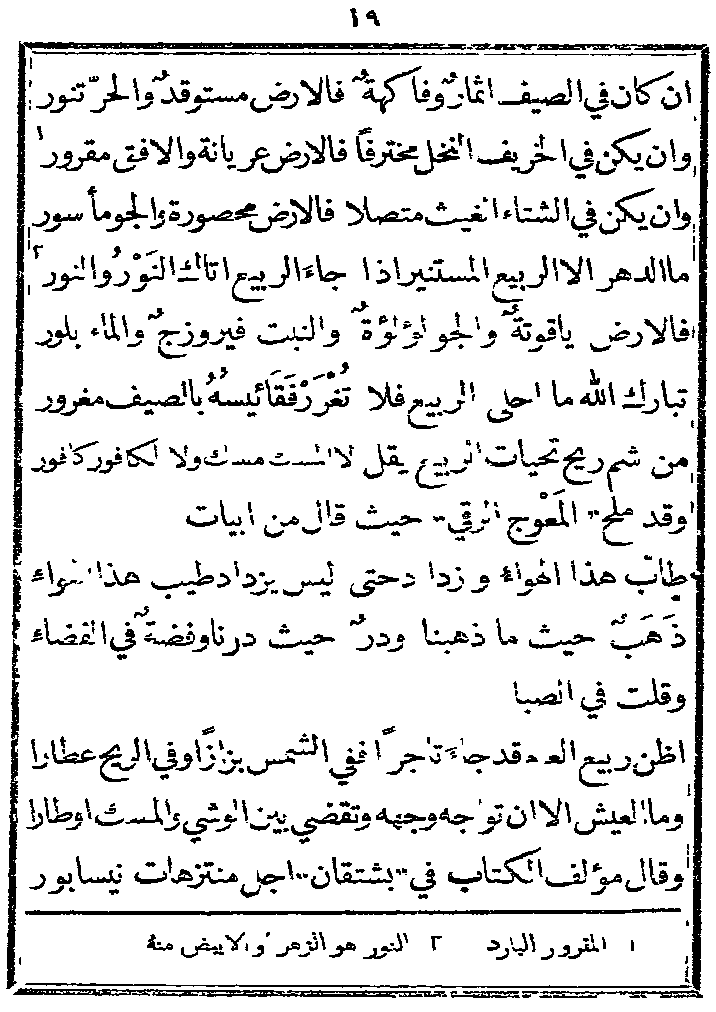 ١٩
ان كان في الصيف اثمارٌ وفاكهةٌ فالارض مستوقدٌ والحرّ تنور
وان يكن في الخريف النخل مخترفًا فالارض عريانة والافق مقرور ١
وان يكن في الشتاء الغيث متصلا فالارض محصورة والجو مأسور
ما الدهر الا الربيع المستنير اذا جاءَ الربيع اتاك النَوْرُ والنور ٢
فالارض ياقوتةٌ والجو لؤلؤةٌ والنبت فيروزجٌ والماء بلور
تبارك الله ما احلى الربيع فلا تُغْرَرْ فَقَائيسهُ بالصيف مغرور
من شم ريح تحيات الربيع يقل لا المسك مسك ولا الكافور كافور
وقد ملح " المَعْوج الرقي " حيث قال من ابيات
طابَ هذا الهواءُ وزدا دحتى ليس يزداد طيب هذا الهواء
ذَهَبٌ حيث ما ذهبنا ودرٌ حيث درنا وفضةٌ في الفضاء
وقلت في الصبا
اظن ربيع العـ قد جاءَ تاجرًا ففي الشمس بزازًا وفي الريح عطارا
وما العيش الا ان تواجه وجهه وتقضي بين الوشي والمسك اوطارا
وقال مؤلف الكتاب في " بشتقان " اجل منتزهات نيسابور
١ المقرور البارد ٢ النور هو الزهر او الابيض منهُ